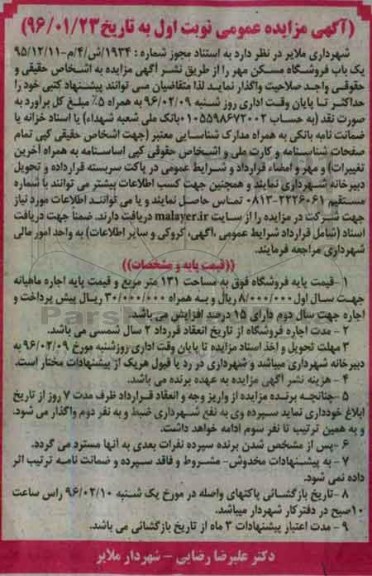 (آگهی مزایده عمومی نوبت اول به تاریخ ۹۶/۰۱/۲۳)
شهرداری ملایر در نظر دارد به استناد مجوز شماره : ۱۹۳۴/ش/۴/م-۹۵/۱۲/۱۱
یک باب فروشگاه مسکن مهر را از طریق نشر آگهی مزایده به اشخاص حقیقی و
حقوقی واجد صلاحیت واگذار نماید لذا متقاضیان می توانند پیشنهاد کتبی خود را
حداکثر تا پایان وقت اداری روز شنبه ۹۶/۰۲/۰۹ به همراه ۵٪ مبلغ کل برآورد به
صورت نقد (به حساب ۱۰۵۵۹۸۶۷۲۰۰۲بانک ملی شعبه شهداء) یا اسناد خزانه یا
ضمانت نامه بانکی به همراه مدارک شناسایی معتبر (جهت اشخاص حقیقی کپی تمام
صفحات شناسنامه و کارت ملی و اشخاص حقوقی کپی اساسنامه به همراه آخرین
تغییرات) و مهر و امضاء قرارداد و شرایط عمومی در پاکت سربسته قرارداده و تحویل
دبیرخانه شهرداری نمایند و همچنین جهت کسب اطلاعات بیشتر می توانند با شماره
مستقیم ۲۲۲۶۰۶۱-۰۸۱۳ تماس حاصل نمایند و یا می توانند اطلاعات مورد نیاز
جهت شرکت در مزایده را از سایت malayer.ir دریافت دارند. ضمنا جهت دریافت
اسناد (شامل قرارداد شرایط عمومی ،آگهی، کروکی و سایر اطلاعات) به واحد امور مالی
شهرداری مراجعه فرمایند.
((قیمت پایه و مشخصات))
۱-قیمت پایه فروشگاه فوق به مساحت ۱۳۱ متر مربع و قیمت پایه اجاره ماهیانه
جهت سال اول ۸/۰۰۰/۰۰۰ ریال و به همراه ۳۰/۰۰۰/۰۰۰ ریال پیش پرداخت و
اجاره جهت سال دوم دارای ۱۵ درصد افزایش می باشد.
۲- مدت اجاره فروشگاه از تاریخ انعقاد قرارداد ۲ سال شمسی می باشد.
۳ مهلت تحویل و اخذ اسناد مزایده تا پایان وقت اداری روزشنبه مورخ ۹۶/۰۲/۰۹ به
دبیرخانه شهرداری میباشد و شهرداری در رد یا قبول هریک از پیشنهادات مختار است.
۴- هزینه نشر آگهی مزایده به عهده برنده می باشد.
۵-چنانچه برنده مزایده از واریز وجه و انعقاد قرارداد ظرف مدت ۷ روز از تاریخ
ابلاغ خودداری نماید سپرده وی به نفع شهرداری ضبط و به نفر دوم واگذار می شود.
و به همین ترتیب تا نفر سوم ادامه خواهد داشت.
۶ -پس از مشخص شدن برنده سپرده نفرات بعدی به آنها مسترد می گردد.
۷- به پیشنهادات مخدوش- مشروط و فاقد سپرده و ضمانت نامه ترتیب اثر
داده نمی شود.
۸-تاریخ بازگشائی پاکتهای واصله در مورخ یک شنبه ۹۶/۰۲/۱۰ راس ساعت
۱۰صبح در دفترکار شهردار میباشد.
۹- مدت اعتبار پیشنهادات ۳ ماه از تاریخ بازگشائی می باشد.
دکتر علیرضا رضایی - شهردار ملایر